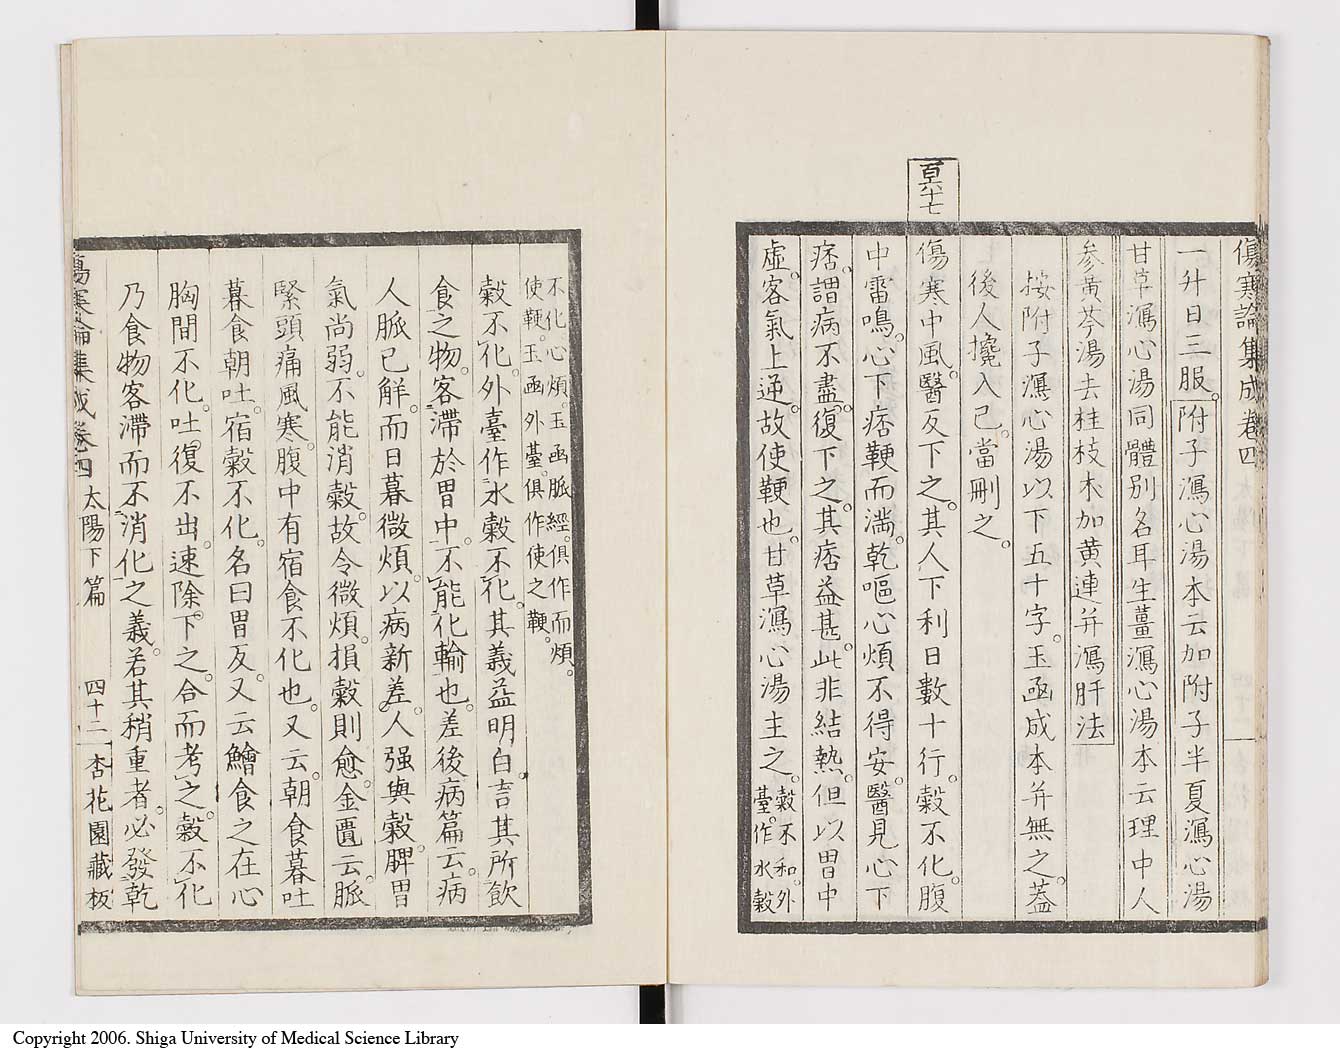 傷寒論集成卷四
一升日三服。附子瀉心湯本云加附子半夏瀉心湯
甘草瀉心湯同體別名耳生薑瀉心湯本云理中人
参黄芩湯去桂枝木加黄連并瀉肝法
按附子瀉心湯以下五十字。玉函成本并無之。蓋
後人攙入已。當刪之。
百六十七
傷寒中風。醫反下之。其人下利日數十行。穀不化。腹
中雷鳴。心下痞鞕而満。乾嘔心煩不得安。醫見心下
痞。謂病不盡。復下之。其痞益甚。此非結熱。但以胃中
虛。客氣上逆。故使鞕也。甘草瀉心湯主之。穀不和。外
臺。作水穀
不化心煩。玉函脈經。俱作而煩。
使鞕。玉函外臺。俱作使之鞕。
穀不化。外臺作水穀不化。其義益明白言其所飲
食之物。客滯於胃中。不能化輸也。差後病篇云。病
人脈已解。而日暮微煩。以病新差。人强與穀。脾胃
氣尚弱。不能消穀。故令微煩。損穀則愈。金匱云。脈
緊頭痛風寒。腹中有宿食不化也。又云。朝食暮吐
暮食朝吐。宿穀不化。名曰胃反。又云鱠食之在心
胸間不化。吐復不出。速除。下之。合而考之。穀不化
乃食物客滯而不消化之義。若其稍重者。必發乾
傷寒論集成卷四 太陽下篇 四十二 杏花園藏板
Copyright 2006. Shiga University of Medical Science Library